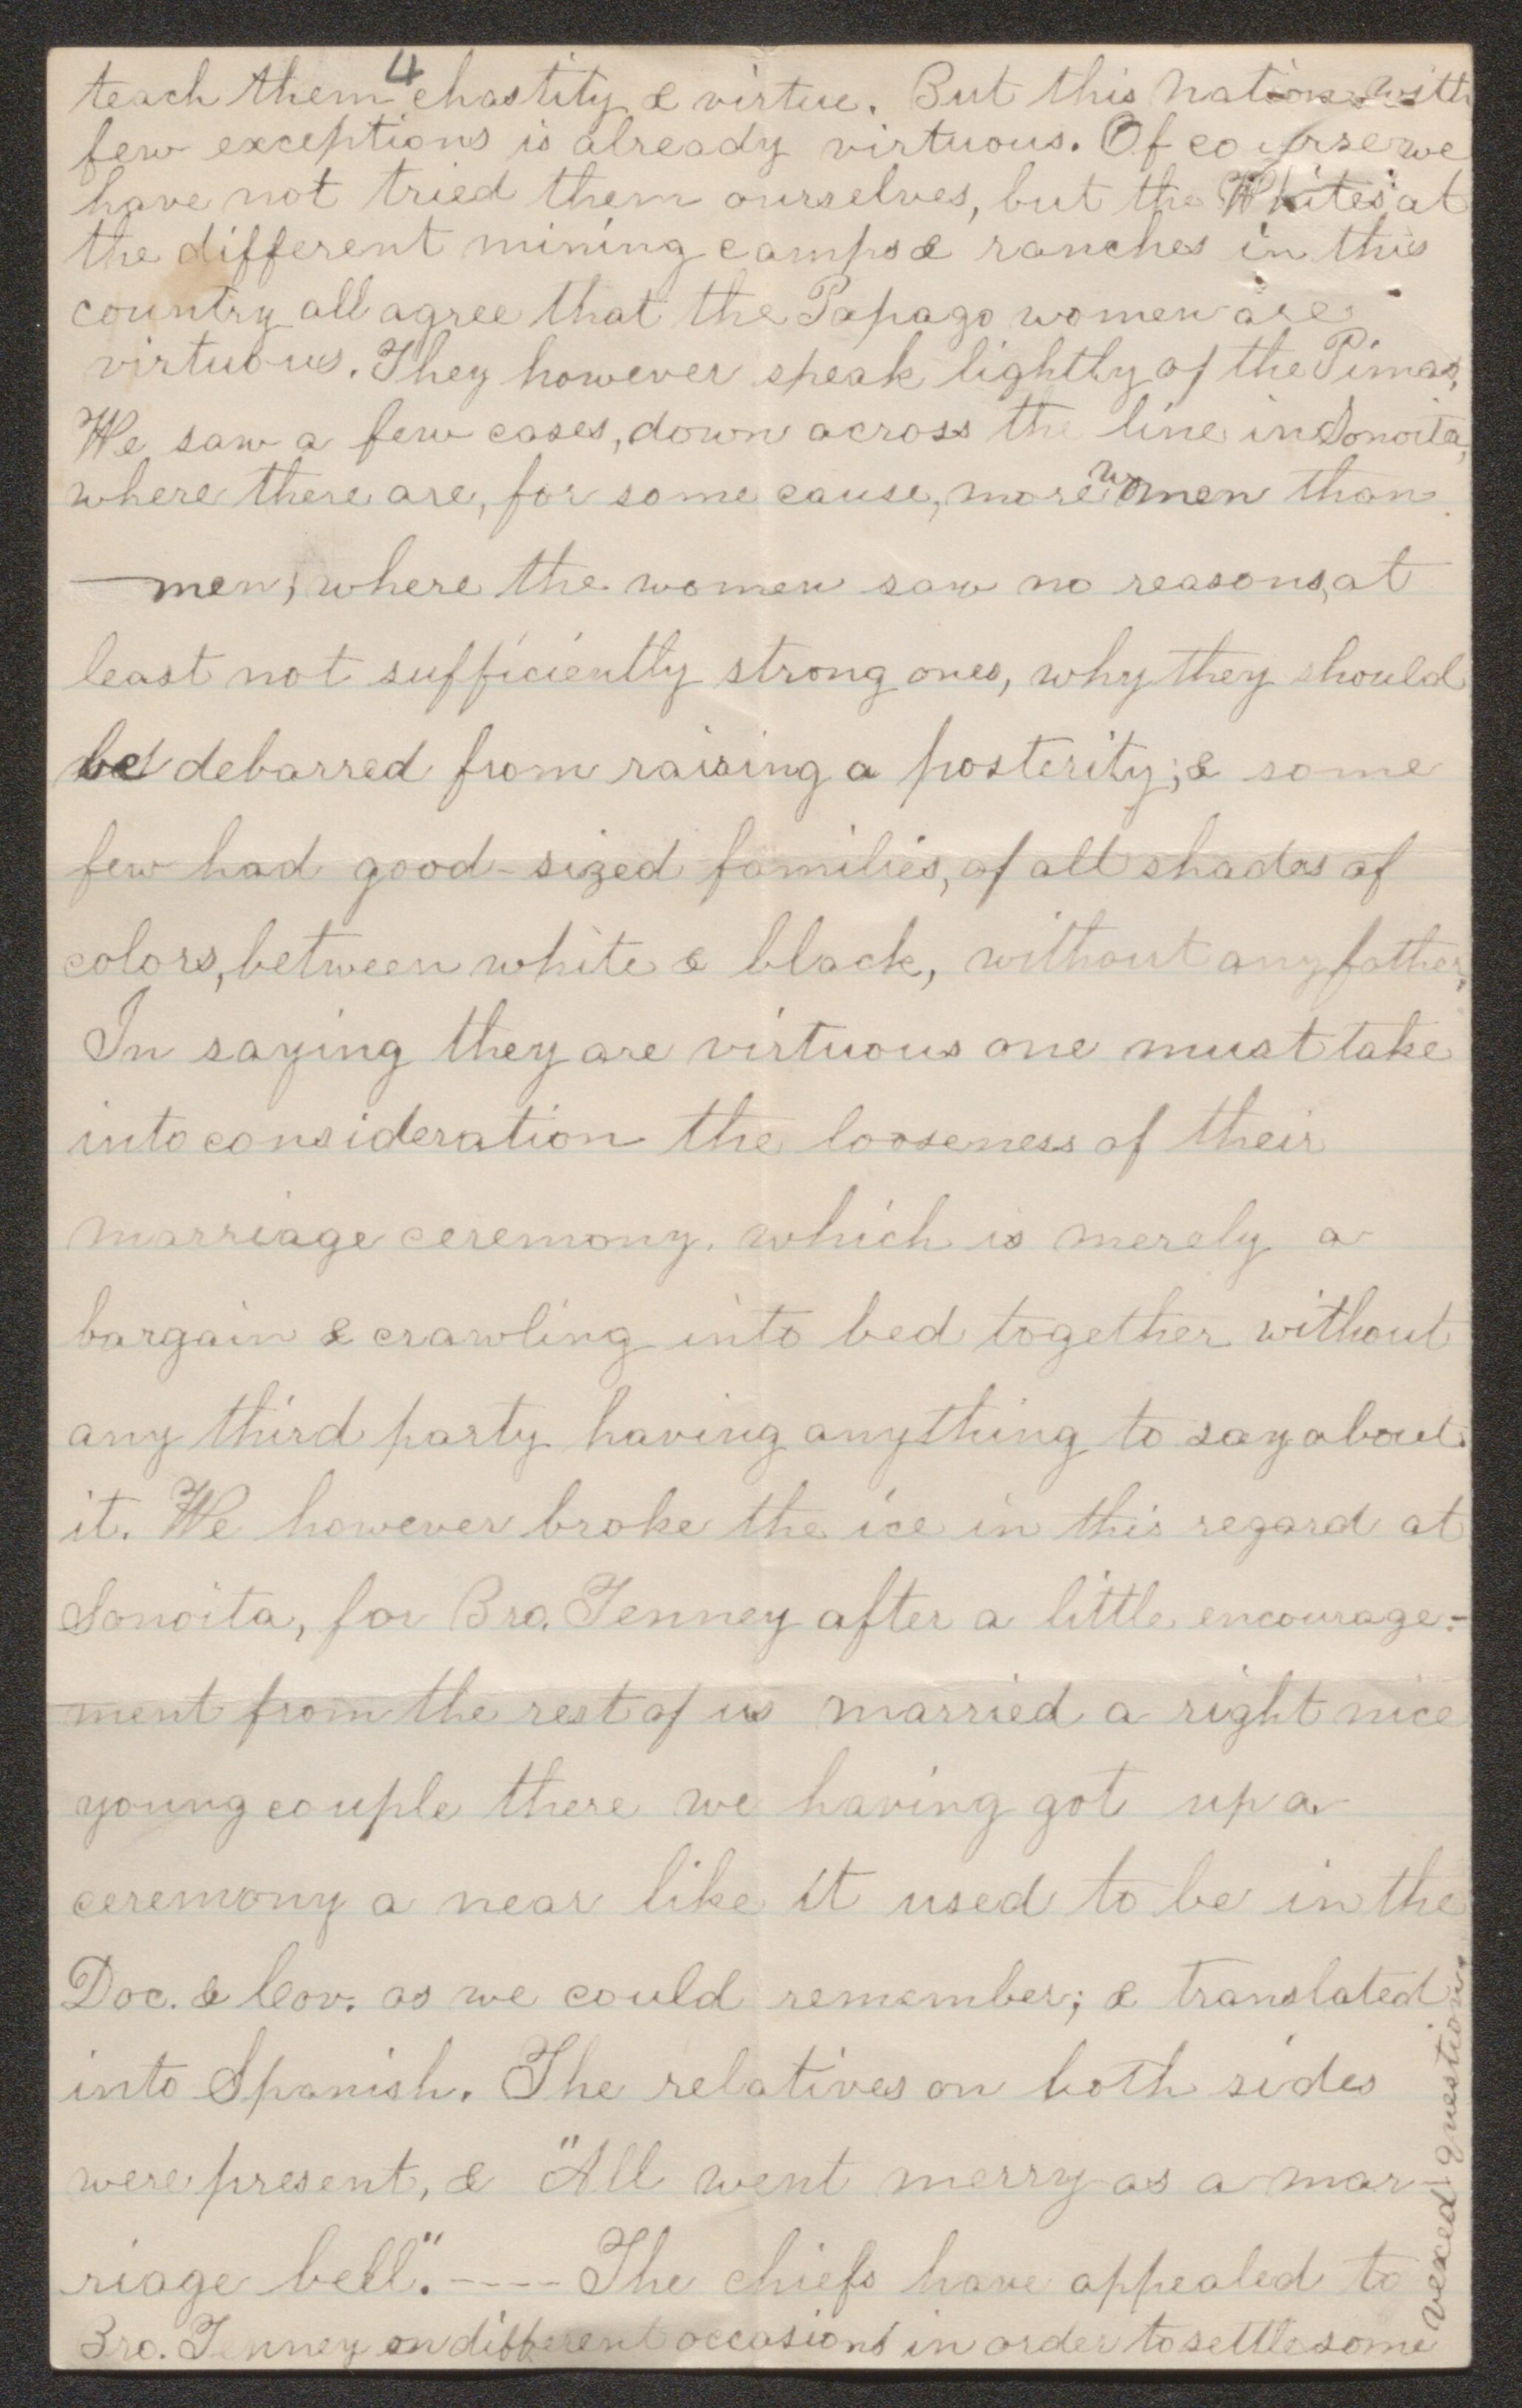 4
teach them chastity & virtue. But this nation with
few exceptions is already virtuous. Of course we
have not tried them ourselves, but the Whites at
the different mining camps & ranches in this
country all agree that the Papago women are
virtuous. They however speak lightly of the Pimas.
We saw a few cases, down across the line in Sonoita,
where there are, for some cause, more women than
men; where the women saw no reasons, at
least not sufficiently strong ones, why they should
be debarred from raising a posterity; & some
few had good-sized families, of all shades of
colors, between white & black, without any father.
In saying they are virtuous one must take
into consideration the looseness of their
marriage ceremony. which is merely a
bargain & crawling into bed together without
any third party having anything to say about
it. We however broke the ice in this regard at
Sonoita, for Bro. Tenney after a little encourage-
ment from the rest of us married a right nice
young couple there we having got up a
ceremony a near like it used to be in the
Doc. & Cov. as we could remember; & translated
into Spanish. The relatives on both sides
were present, & "All went merry as a mar-
riage bell." ---- The chiefs have appealed to
Bro. Tenney on different occasions in order to settle some
vexed questions.